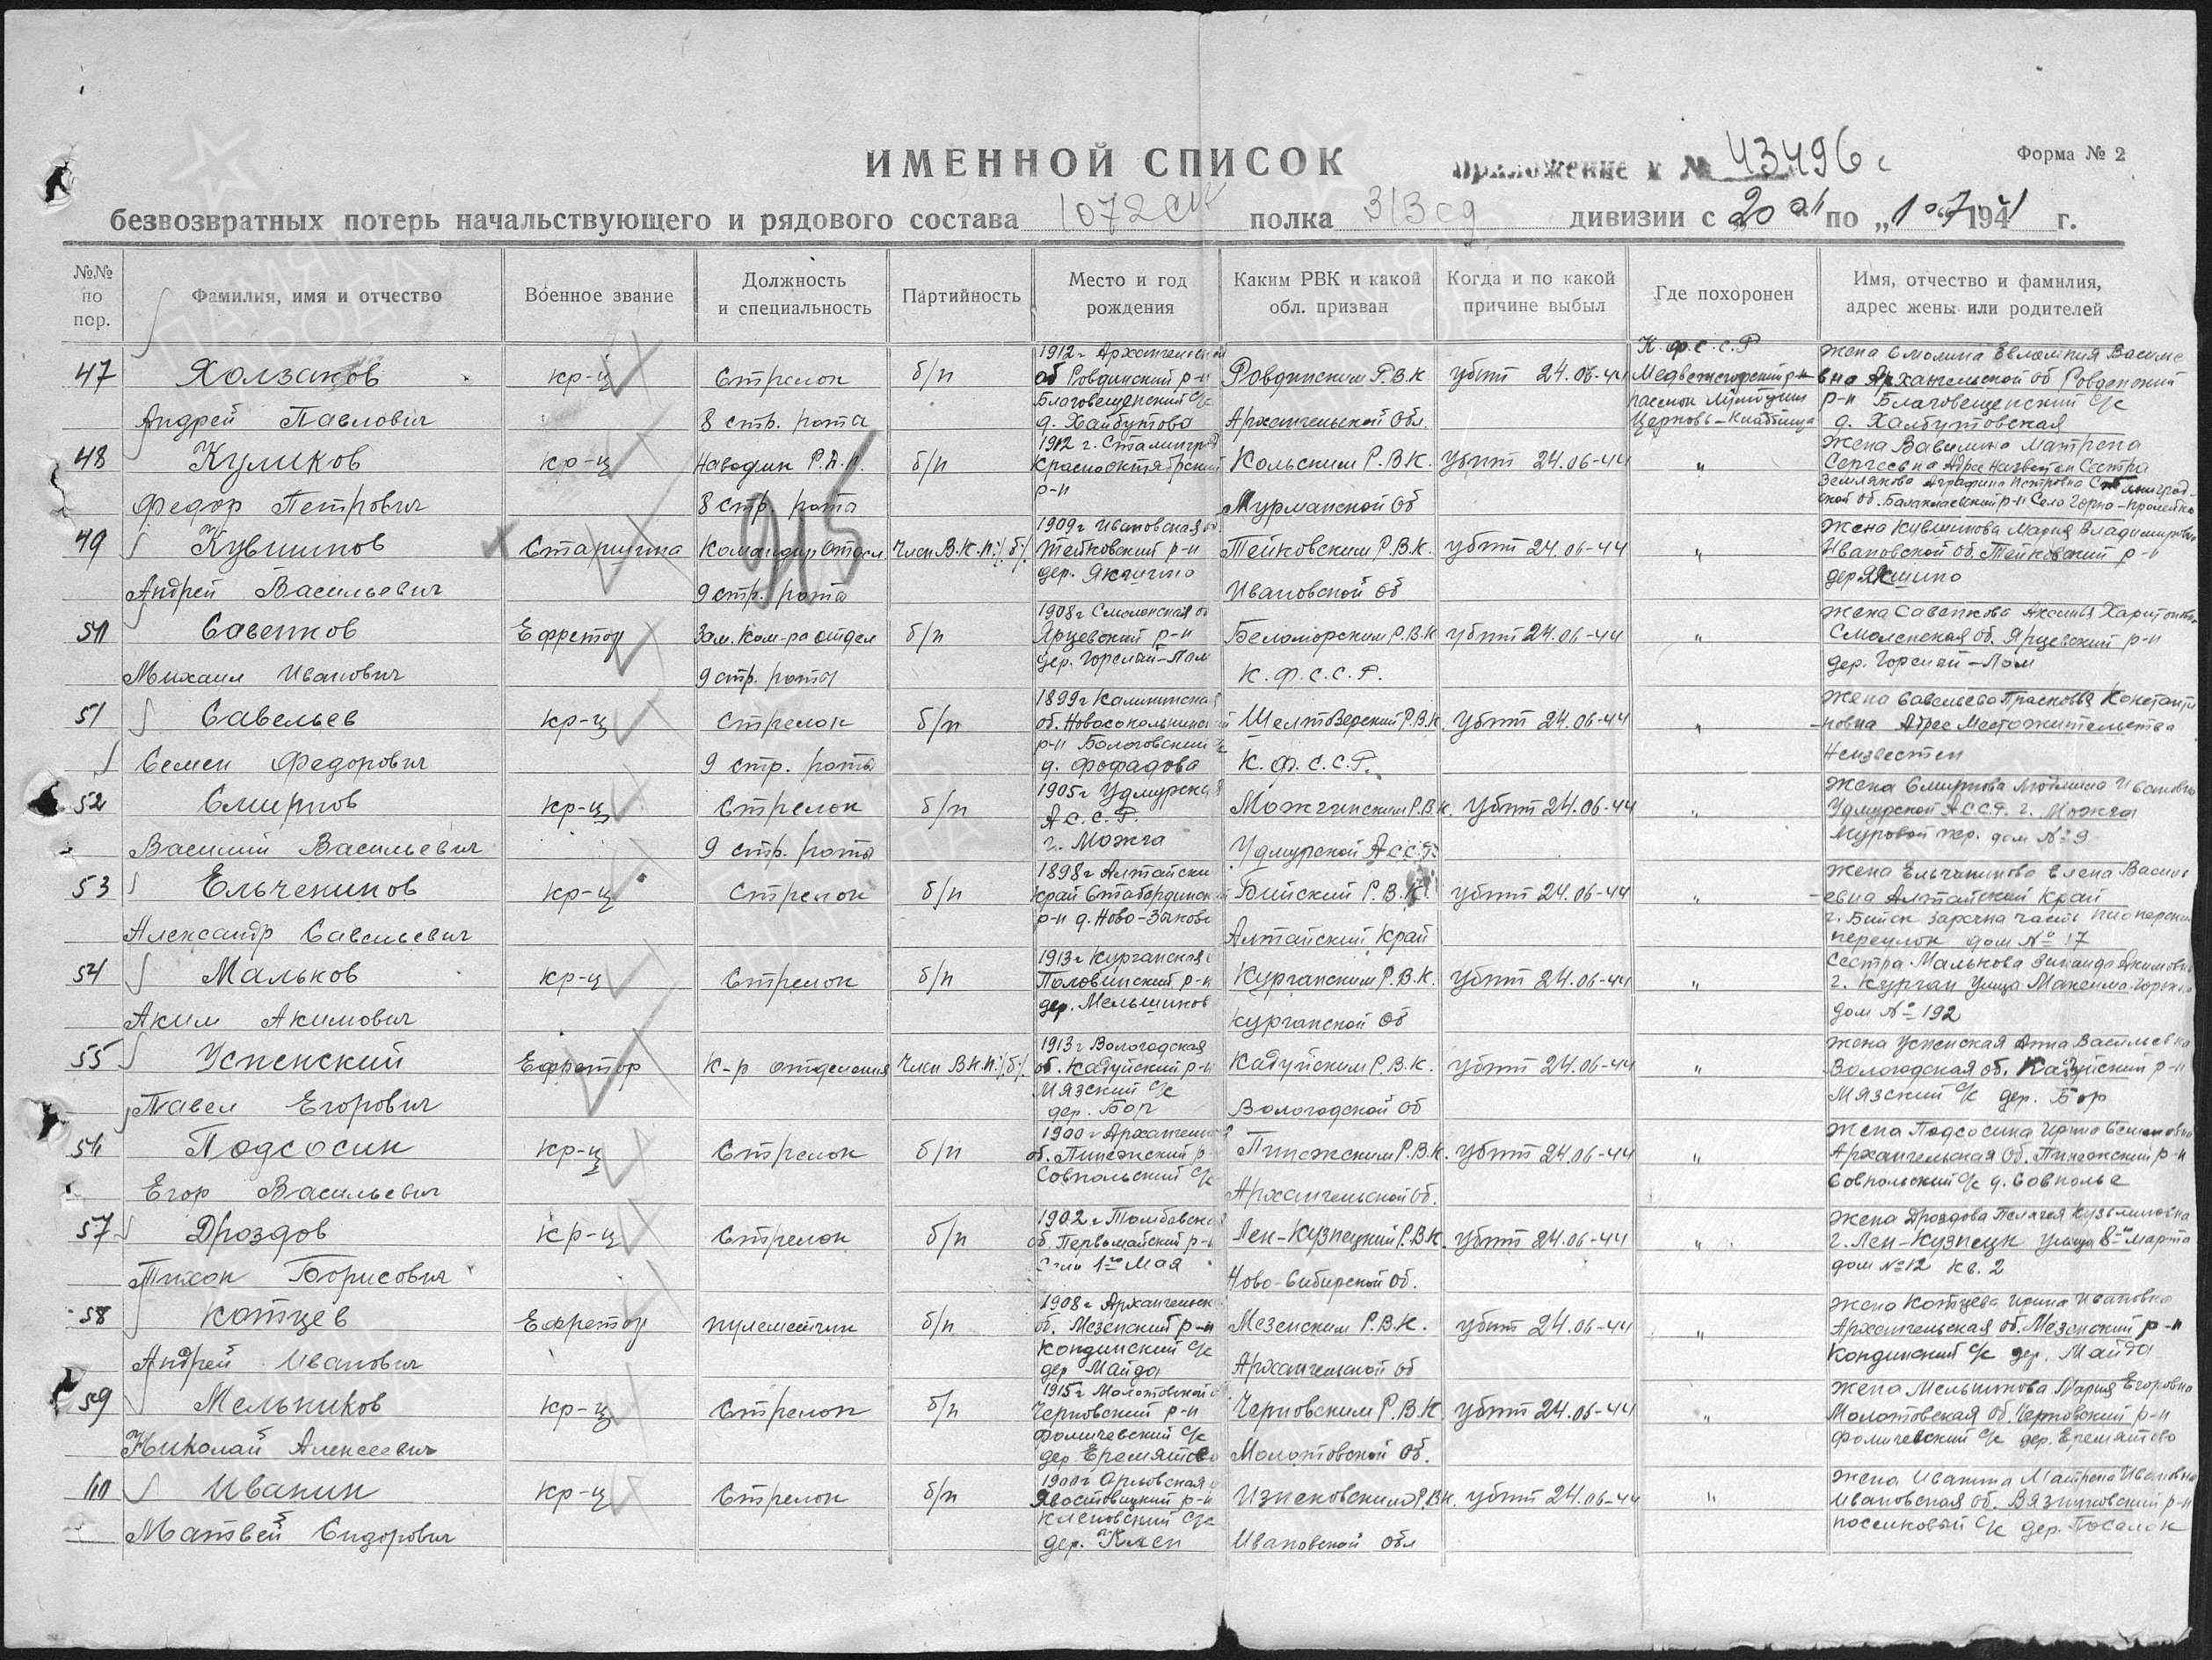 ИМЕННОЙ СПИСОК
Приложение к № 43496с
Форма № 2
безвозвратных потерь начальствующего и рядового состава 1072 СП полка 313 сд дивизии с 20 по „1 07 194 г.
№№ по пор.
Фамилия, имя и отчество
Военное звание
Должность и специальность
Партийность
Место и год рождения
Каким РВК и какой обл. призван
Когда и по какой причине выбыл
Где похоронен
Имя, отчество и фамилия, адрес жены или родителей
47 Холзаков Андрей Павлович
кр-ц
Стрелок
8 стр. рота
б/п
1912 г Архангельской
об Ровдинский р-н
Благовещенский с/с
д. Хайбутова
Ровдинским Р.В.К
Архангельской Обл.
убит 24.06-44
К.Ф.С.С.Р
Медвежегорский р-н
Церковь-Кяппесельга
жена Смолина Евлампия Василье
вна Архангельской об Ровденский
р-н Благовещенский с/с
д. Халбутовская
48 Куликов Федор Петрович
кр-ц
наводчик Р.П.
8 стр. рота
б/п
1912 г. Сталинград
Краснооктябрский
р-н
Кольским Р.В.К.
Мурманской Об
убит 24.06-44
"
жена Вавилина Матрена
Сергеевна Адрес Неизвестен Сестра
Землякова Аграфена Петровна Сталинград-
49 Кувшинов Андрей Васильевич
Старшина
Командир отдел.
9 стр. рота
Член В.К.П./б/
1909 г Ивановская об.
Тейковский р-н
дер. Якшино
Тейковским Р.В.К.
Ивановской об
убит 24.06-44
"
жена Кувшинова Мария Владимировна
Ивановской об. Тейковский р-н
дер. Якшино
50 Савенков Михаил Иванович
Ефрейтор
Зам. Ком-ра отдел
9 стр. роты
б/п
1908 г Смоленская об
Ярцевский р-н
Беломорским Р.В.К
К.Ф.С.С.Р.
убит 24.06-44
"
жена Савенкова Аксинья Харитоновна
Смоленская об. Ярцевский р-н
51 Савельев Семен Федорович
кр-ц
Стрелок
9 стр. роты
б/п
1899 г Калининская
об. Новосокольнический
р-н Бологовский с/с
д. Фофадова
Шелтозерский Р.В.К.
К.Ф.С.С.Р.
убит 24.06-44
"
жена Савельева Прасковья Константи
-новна Адрес Местожительства
Неизвестен
52 Смирнов Василий Васильевич
кр-ц
Стрелок
9 стр. роты
б/п
1905 г Удмурская
А.С.С.Р.
г. Можга
Можгинским Р.В.К.
Удмурской А.С.С.Р.
убит 24.06-44
"
жена Смирнова Людмила Ивановна
Удмурской А.С.С.Р. г. Можга
пер. дом № 9
53 Ельчеников Александр Савельевич
кр-ц
Стрелок
б/п
1898 г Алтайский
край Стабардинский
р-н д. Ново-Зыково
Бийский Р.В.К.
Алтайский край
убит 24.06-44
"
жена Ельчанинова Елена Василь
-евна Алтайский край
г. Бийск заречна часть пионерский
переулок дом № 17
54 Мальков Аким Акимович
кр-ц
Стрелок
б/п
1913 г Курганская
Половинский р-н
дер. Мельников
Курганским Р.В.К.
Курганской об
убит 24.06-44
"
Сестра Малькова Зинаида Акимовна
г. Курган Улица Максима Горького
дом № 192
55 Успенский Павел Егорович
Ефрейтор
К-р отделения
Член В.К.П./б/
1913 г Вологодская
об. Кадуйский р-н
Мязский с/с
дер. Бор
Кадуйским Р.В.К.
Вологодской об
убит 24.06-44
"
жена Успенская Анна Васильевна
Вологодская об. Кадуйский р-н
Мязский с/с дер. Бор
56 Подсосин Егор Васильевич
кр-ц
Стрелок
б/п
1900 г Архангельской
об. Пинежский р-
Совпольский с/с
Пинежским Р.В.К.
Архангельской об.
убит 24.06-44
"
жена Подсосина Ирина Семеновна
Архангельская об. Пинежский р-н
Совпольский с/с д. Совполье
57 Дроздов Тихон Борисович
кр-ц
Стрелок
б/п
1902 г Тамбовская
об. Первомайский р-н
Село 1ое Мая
Лен-Кузнецкий Р.В.К.
Ново-Сибирской об.
убит 24.06-44
"
жена Дроздова Пелагея Кузьминовна
г. Лен-Кузнецк улица 8ое марта
дом № 12 кв. 2
58 Котцев Андрей Иванович
Ефрейтор
пулеметчик
б/п
1908 г Архангельск
об. Мезенский р-н
Кондинский с/с
дер Майда
Мезенским Р.В.К.
Архангельской об
убит 24.06-44
"
жена Котцева Ирина Ивановна
Архангельская об. Мезенский р-н
Кондинский с/с дер. Майда
59 Мельников Николай Алексеевич
кр-ц
Стрелок
б/п
1915 г Молотовской
Черновский р-н
Фомичевский с/с
дер. Еремятово
Черновским Р.В.К
Молотовской об.
убит 24.06-44
"
жена Мельникова Мария Егоровна
Молотовская об. Черновский р-н
Фомичевский с/с дер. Еремятово
60 Иванин Матвей Сидорович
кр-ц
Стрелок
б/п
1900 г Орловская
Хвостовицкий р-н
Кленовский с/с
дер. Клен
Р.В.К.
Ивановской обл
убит 24.06-44
"
жена Иванина Матрена Ивановна
Ивановская об. Вязниковский р-н
поселковый с/с дер. Поселок
915
ПАМЯТЬ НАРОДА